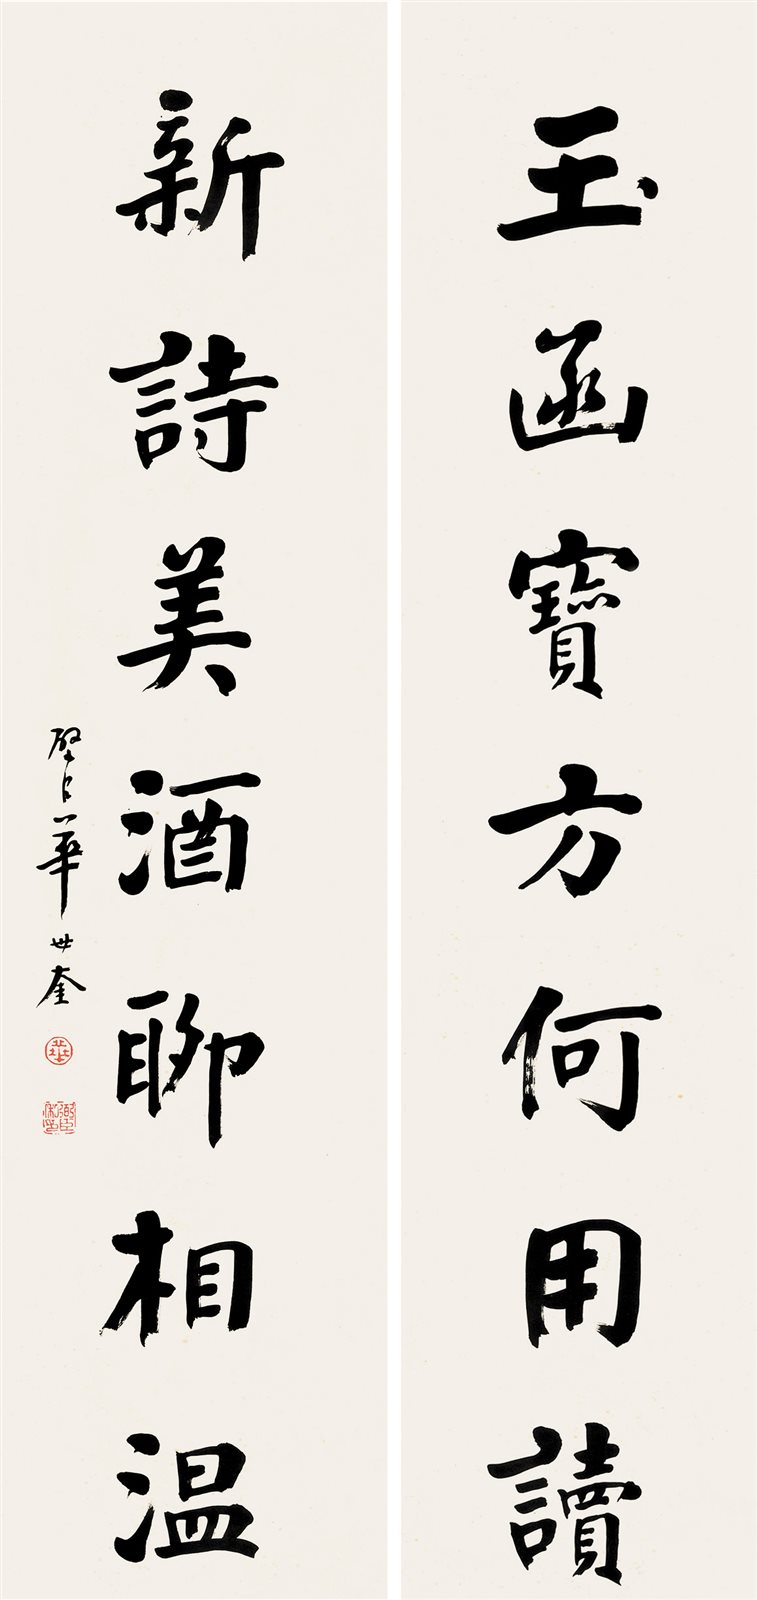 玉函寶方何用讀
新詩美酒聊相温
璧臣華世奎